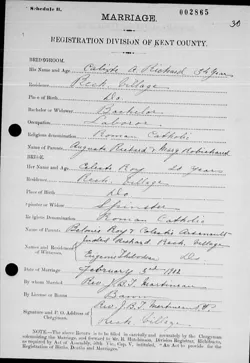 Schedule B.
002865
30
MARRIAGE.
REGISTRATION DIVISION OF KENT COUNTY.
BRIDEGROOM.
His Name and Age, Calixte A. Richard 24 Years
Residence, Rich. Village
Place of Birth, Do
Bachelor or Widower, Bachelor
Occupation, Labourer
Religious denomination, Roman Catholic
Name of Parents, Auguste Richard & Mary Robichaud
BRIDE.
Her Name and Age, Celeste Roy 20 Years
Residence, Rich. Village
Place of Birth, Do
Spinster or Widow, Spinster
Religious Denomination, Roman Catholic
Name of Parents, Roy &
Names and Residences of Witnesses, Richard Rich. Village
Eugene Do
Date of Marriage, February 3rd
By whom Married, Rev. J. B. T. Martineau
By License or Banns, Banns
Signature and P. O. Address of Clergyman, Rev. J. B. T. Martineau
Rich. Village
NOTE.—The above Return is to be filled in carefully and accurately by the Clergyman
solemnizing the Marriage, and returned to W. H. Hutchinson, Division Registrar, Richibucto,
as required by Act of Assembly, 1887, Cap. V, intituled, "An Act to provide for the
Registration of Births, Deaths and Marriages.